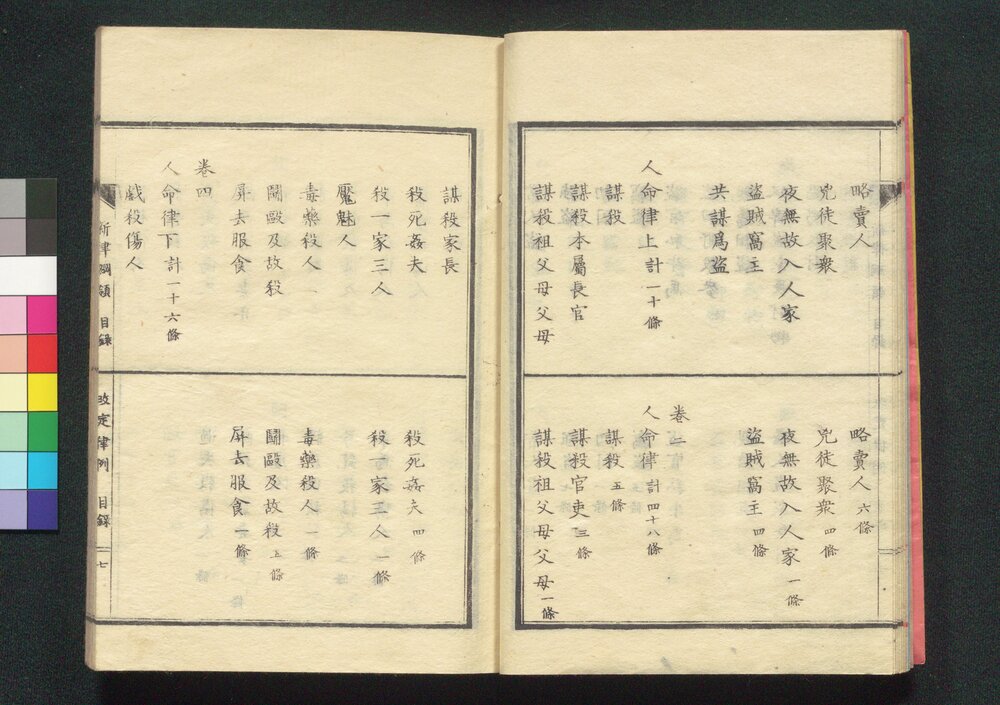 略賣人
兇徒聚衆
夜無故入人家
盜賊窩主
共謀爲盜
人命律上計一十條
謀殺
謀殺本屬長官
謀殺祖父母父母
略賣人 六條
兇徒聚衆 四條
夜無故入人家 一條
盜賊窩主 四條
卷二
人命律 計四十八條
謀殺 五條
謀殺官吏 三條
謀殺祖父母父母 一條
謀殺家長
殺死姦夫
殺一家三人
魘魅人
毒藥殺人
鬪毆及故殺
屏去服食
卷四
人命律下計一十六條
戲殺傷人
新律綱領 目錄
殺死姦夫 四條
殺一家三人 一條
毒藥殺人 一條
鬪毆及故殺 條
屏去服食 一條
改定律例 目錄 七